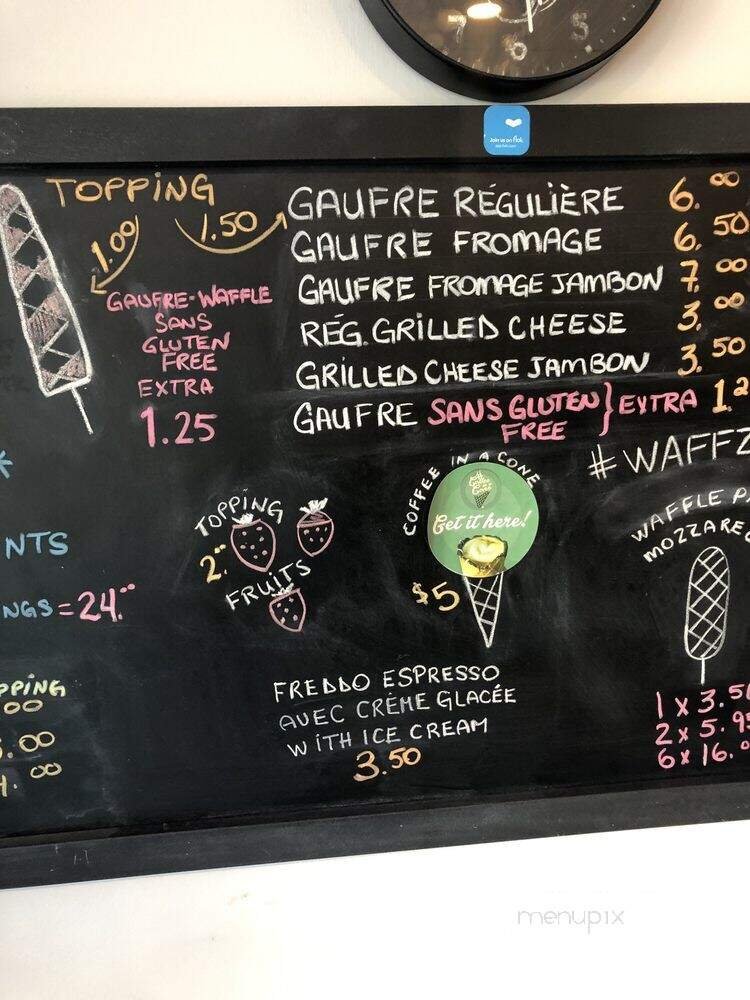 7 6 5
Join us on flok
TOPPING
1.00
1.50
GAUFRE-WAFFLE
SANS
GLUTEN
FREE
EXTRA
1.25
GAUFRE RÉGULIÈRE 6.00
GAUFRE FROMAGE 6.50
GAUFRE FROMAGE JAMBON 7.00
RÉG. GRILLED CHEESE 3.00
GRILLED CHEESE JAMBON 3.50
GAUFRE SANS GLUTEN FREE } EXTRA 1.2
#WAFFZ
NTS
NGS = 24.
PPING
00
.00
4.00
TOPPING
2.
FRUITS
COFFEE IN A CONE
Get it here!
$5
WAFFLE P
MOZZARE
1 x 3.5
2 x 5.9
6x 16.
FREDDO ESPRESSO
AVEC CRÈME GLACÉE
WITH ICE CREAM
3.50
menupix